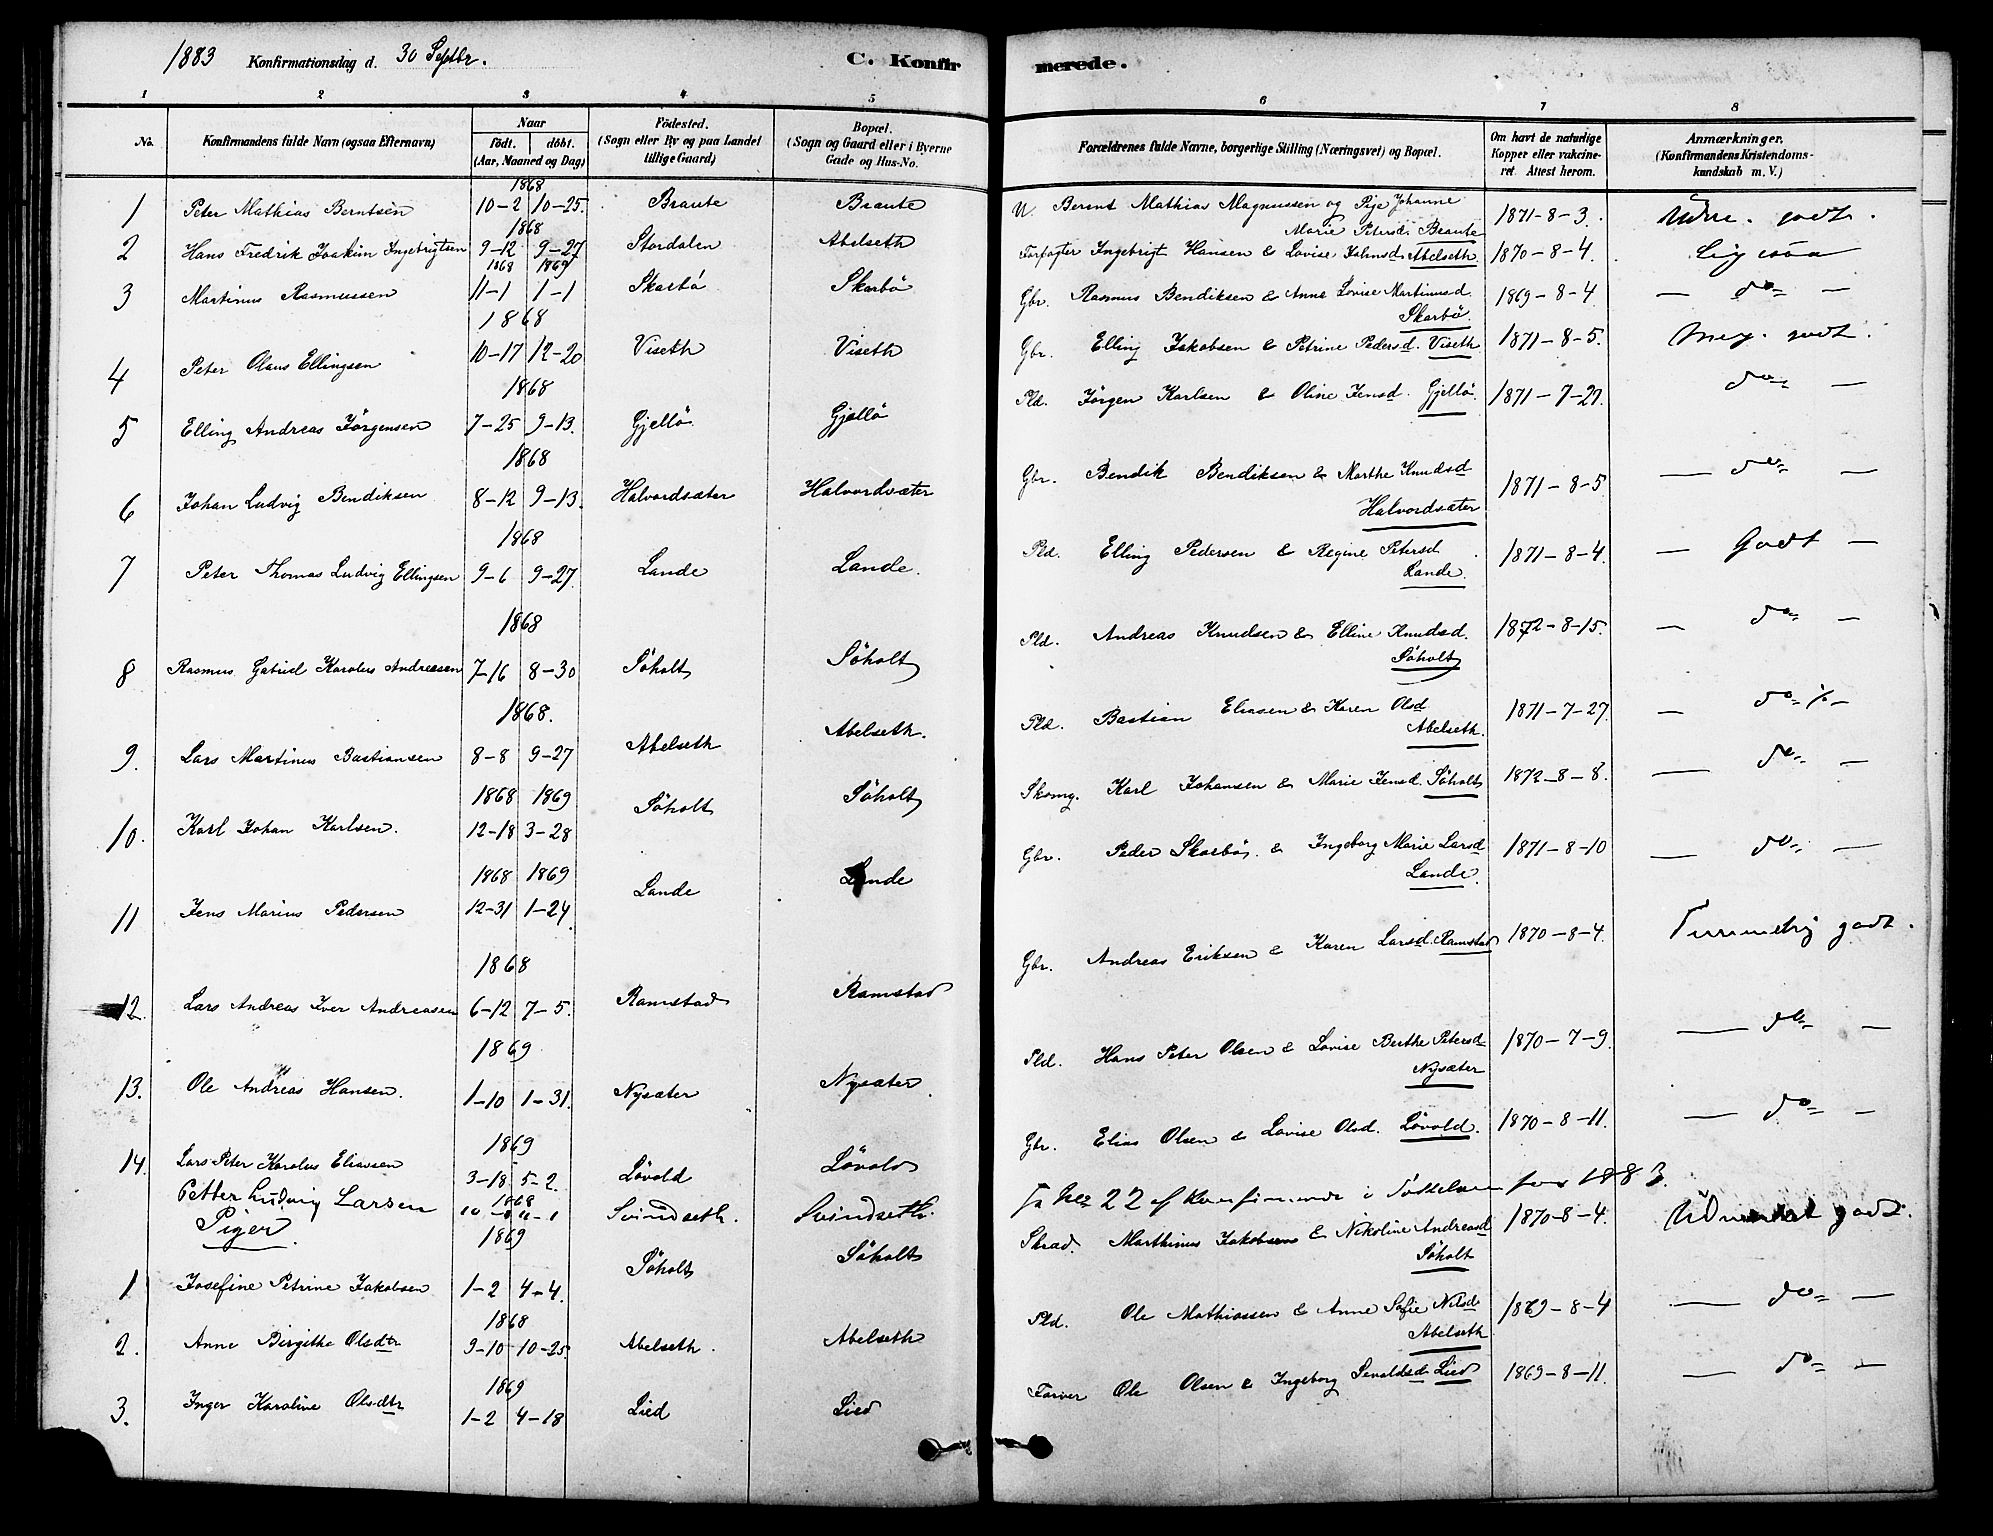 1883 Konfirmationsdag d. 30 Septbr. C. Konfirmerede.
1 2 3 4 5 6 7 8
No. Konfirmandens fulde Navn (ogsaa Efternavn) Naar født. døbt. (Aar, Maaned og Dag) Fødested. (Sogn eller By og paa Landet tillige Gaard) Bopæl. (Sogn og Gaard eller i Byerne Gade og Hus-No. Forældrenes fulde Navne, borgerlige Stilling (Næringsvei) og Bopæl. Om havt de naturlige Kopper eller vakcineret. Attest herom. Anmærkninger. (Konfirmandens Kristendomskundskab m. V.)
1868
1 Peter Mathias Berntsen 10-2 10-25. Braute Braute Berent Mathias Magnussen og Johanne 1871-8-3.
Marie Petersd. Braute
1868
2 Hans Fredrik Joakim Ingebrigtsen 9-12 9-27 Stordalen Abelseth Forpagter Ingebrigt Hansen & Lovise Johnsd. Abelseth. 1870-8-4. Ligesaa
1868 1869
3 Martinus Rasmussen 11-1 1-1 Skarbö Skarbö Gbr. Rasmus Bendiksen & Anne Lovise Martinusd. 1869-8-4 — do — —
Skarbö.
1868
4 Peter Olaus Ellingsen 10-17 12-20 Viseth Viseth Gbr. Elling Jakobsen & Petrine Pedersd. Viseth. 1871-8-5. Meg. godt.
1868
5 Elling Andreas Jörgensen 7-25 9-13. Gjellö Gjellö Pld. Jörgen Karlsen & Oline Jensd. Gjellö. 1871-7-27. do —
1868
6 Johan Ludvig Bendiksen 8-12 9-13. Halvordsæter Halvordsæter Gbr. Bendik Bendiksen & Marthe Knudsd 1871-8-5 — do —
Halvordsæter
1868
7 Peter Thomas Ludvig Ellingsen 9-6 9-27. Lande Lande. Pld. Elling Pedersen & Regine Petersd. 1871-8-4. — Godt —
Lande.
1868
8 Rasmus Gabriel Karolus Andreasen 7-16 8-30 Söholt Söholt Pld. Andreas Knudsen & Elline Knudsd. 1872-8-15. — do —
Söholt
1868.
9. Lars Martinus Bastiansen 8-8 9-27 Abelseth Abelseth. Pld. Bastian Eliasen & Karen Olsd 1871-7-27. — do —
Abelseth.
1868 1869
10. Karl Johan Karlsen. 12-18 3-28 Söholt Söholt Skomg. Karl Johansen & Marie Jensd. Söholt 1872-8-8. — do —
1868 1869
11 Jens Marius Pedersen 12-31 1-24. Lande Lande Gbr. Peder Skarbö & Ingeborg Marie Larsd 1871-8-10 — do —
Lande.
1868
12. Lars Andreas Iver Andreasen 6-12 7-5. Ramstad Ramstad Gbr. Andreas Eriksen & Karen Larsd. Ramstad 1870-8-4. Temmelig godt.
1869
13. Ole Andreas Hansen. 1-10 1-31. Nysæter Nysæter Pld. Hans Peter Olsen & Lovise Berthe Petersd 1870-7-9. — do —
Nysæter
1869
14. Lars Peter Karolus Eliassen 3-18 5-2. Lövold Lövold Gbr. Elias Olsen & Lovise Olsd. Lövold. 1870-8-11. — do —
1868
Petter Ludvig Larsen Svindseth. Svindseth. 22 af Konfirmerede i for 1883.
Piger
1869
1 Josefine Petrine Jakobsen 1-2 4-4. Söholt Söholt Skrad. Marthinus Jakobsen & Nikoline Andreasd 1870-8-4. Udmærket godt.
Söholt
1868
2. Anne Birgithe Olsdtr 9-10 10-25. Abelseth. Abelseth Pld. Ole Mathiassen & Anne Sofie Nilsd 1869-8-4 — do —
Abelseth
1869
3. Inger Karoline Olsdtr 1-2 4-18 Lied Lied Farver Ole Olsen & Ingeborg Sevaldsd. Lied 1869-8-11. — do —